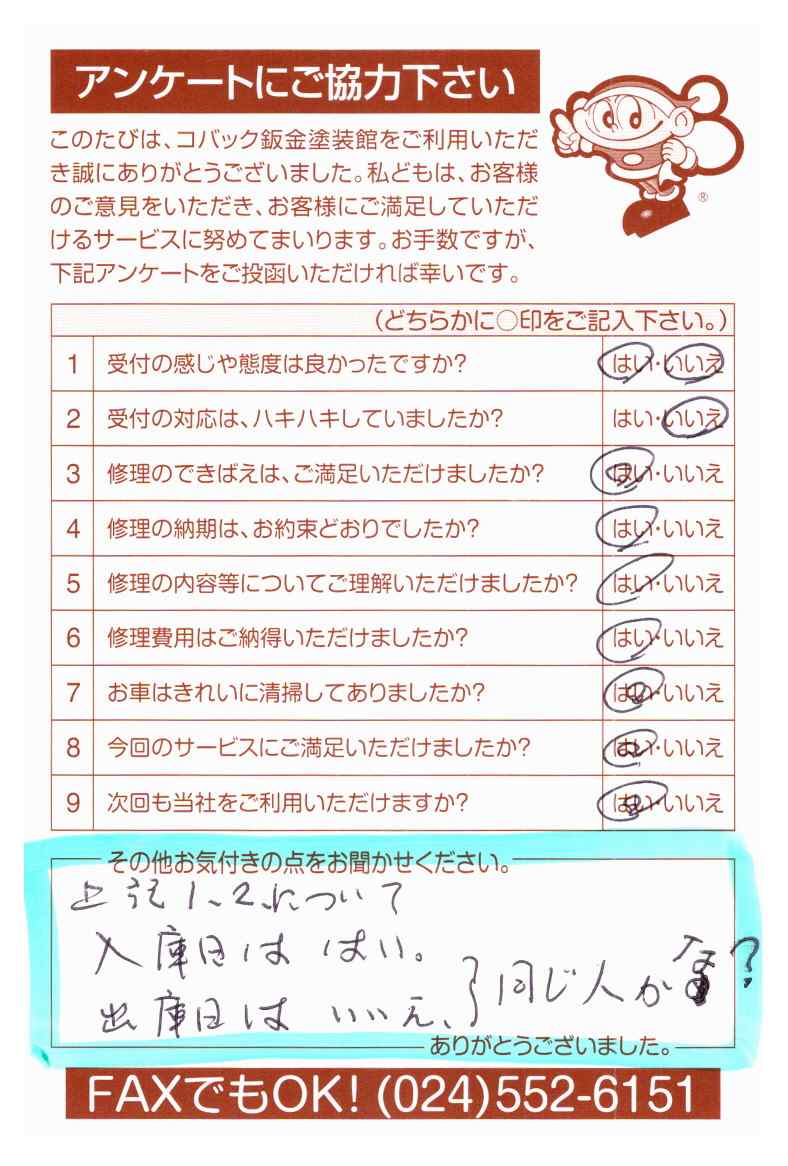 アンケートにご協力下さい
このたびは、コバック鈑金塗装館をご利用いただ
き誠にありがとうございました。私どもは、お客様
のご意見をいただき、お客様にご満足していただ
けるサービスに努めてまいります。お手数ですが、
下記アンケートをご投函いただければ幸いです。
®
(どちらかに○印をご記入下さい。)
1 受付の感じや態度は良かったですか? はい・いいえ
2 受付の対応は、ハキハキしていましたか? はい・いいえ
3 修理のできばえは、ご満足いただけましたか? はい・いいえ
4 修理の納期は、お約束どおりでしたか? はい・いいえ
5 修理の内容等についてご理解いただけましたか? はい・いいえ
6 修理費用はご納得いただけましたか? はい・いいえ
7 お車はきれいに清掃してありましたか? はい・いいえ
8 今回のサービスにご満足いただけましたか? はい・いいえ
9 次回も当社をご利用いただけますか? はい・いいえ
その他お気付きの点をお聞かせください。
上記1、2、について
入庫日は はい。
出庫日は いいえ、
}同じ人か ?
ありがとうございました。
FAXでもOK! (024)552-6151